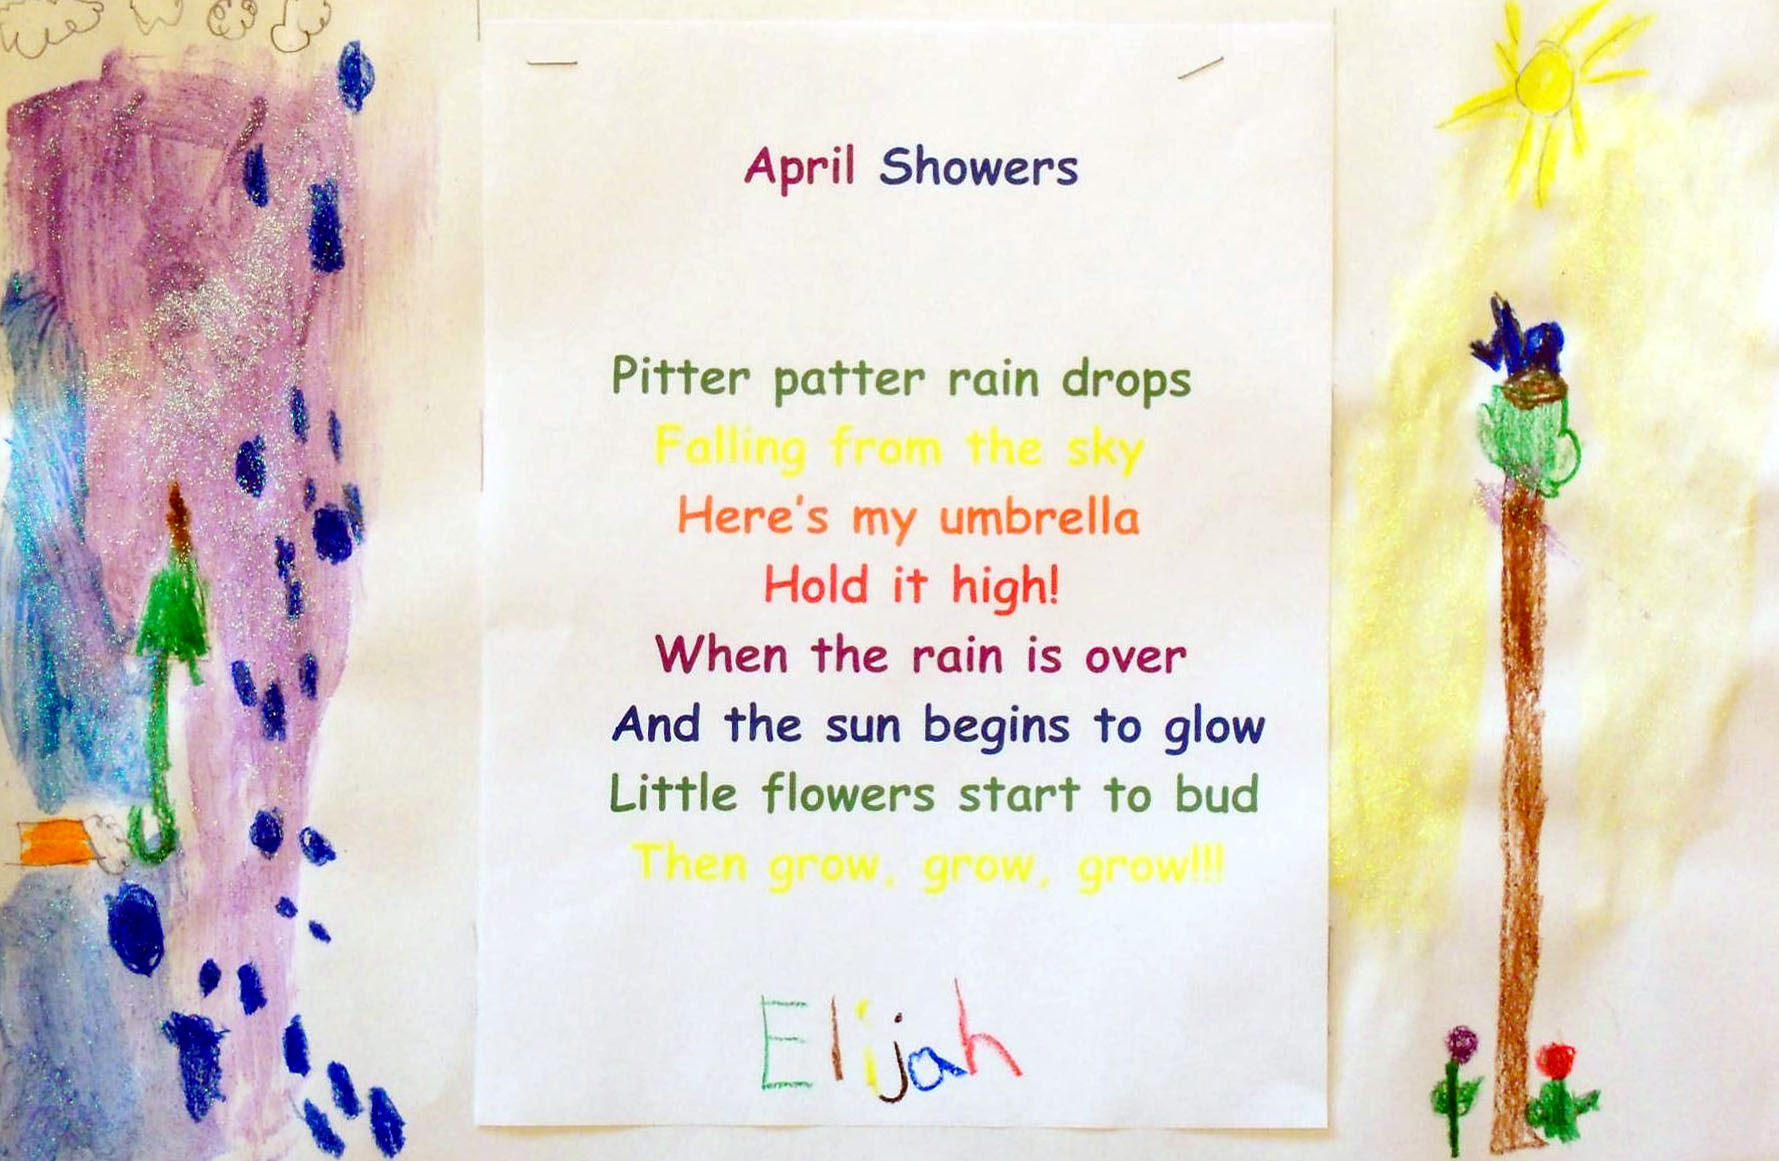 April Showers
Pitter patter rain drops
Falling from the sky
Here's my umbrella
Hold it high!
When the rain is over
And the sun begins to glow
Little flowers start to bud
Then grow, grow, grow!!!
Elijah